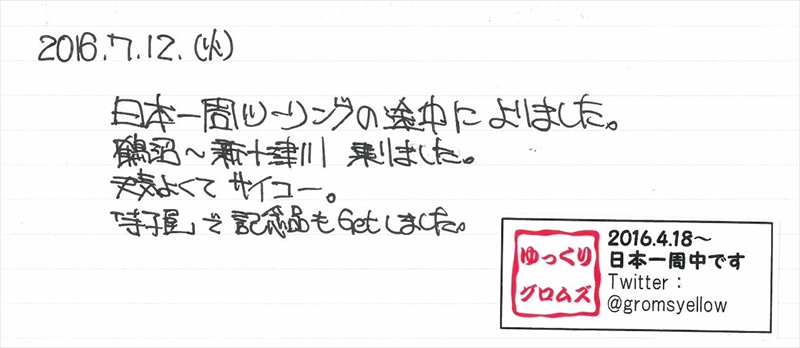 2016.7.12.(火)
日本一周ツーリングの途中によりました。
鶴沼～新十津川 乗りました。
天気よくて サイコー。
「寺子屋」で記念品もGetしました。
ゆっくり
グロムズ
2016.4.18～
日本一周中です
Twitter :
@gromsyellow